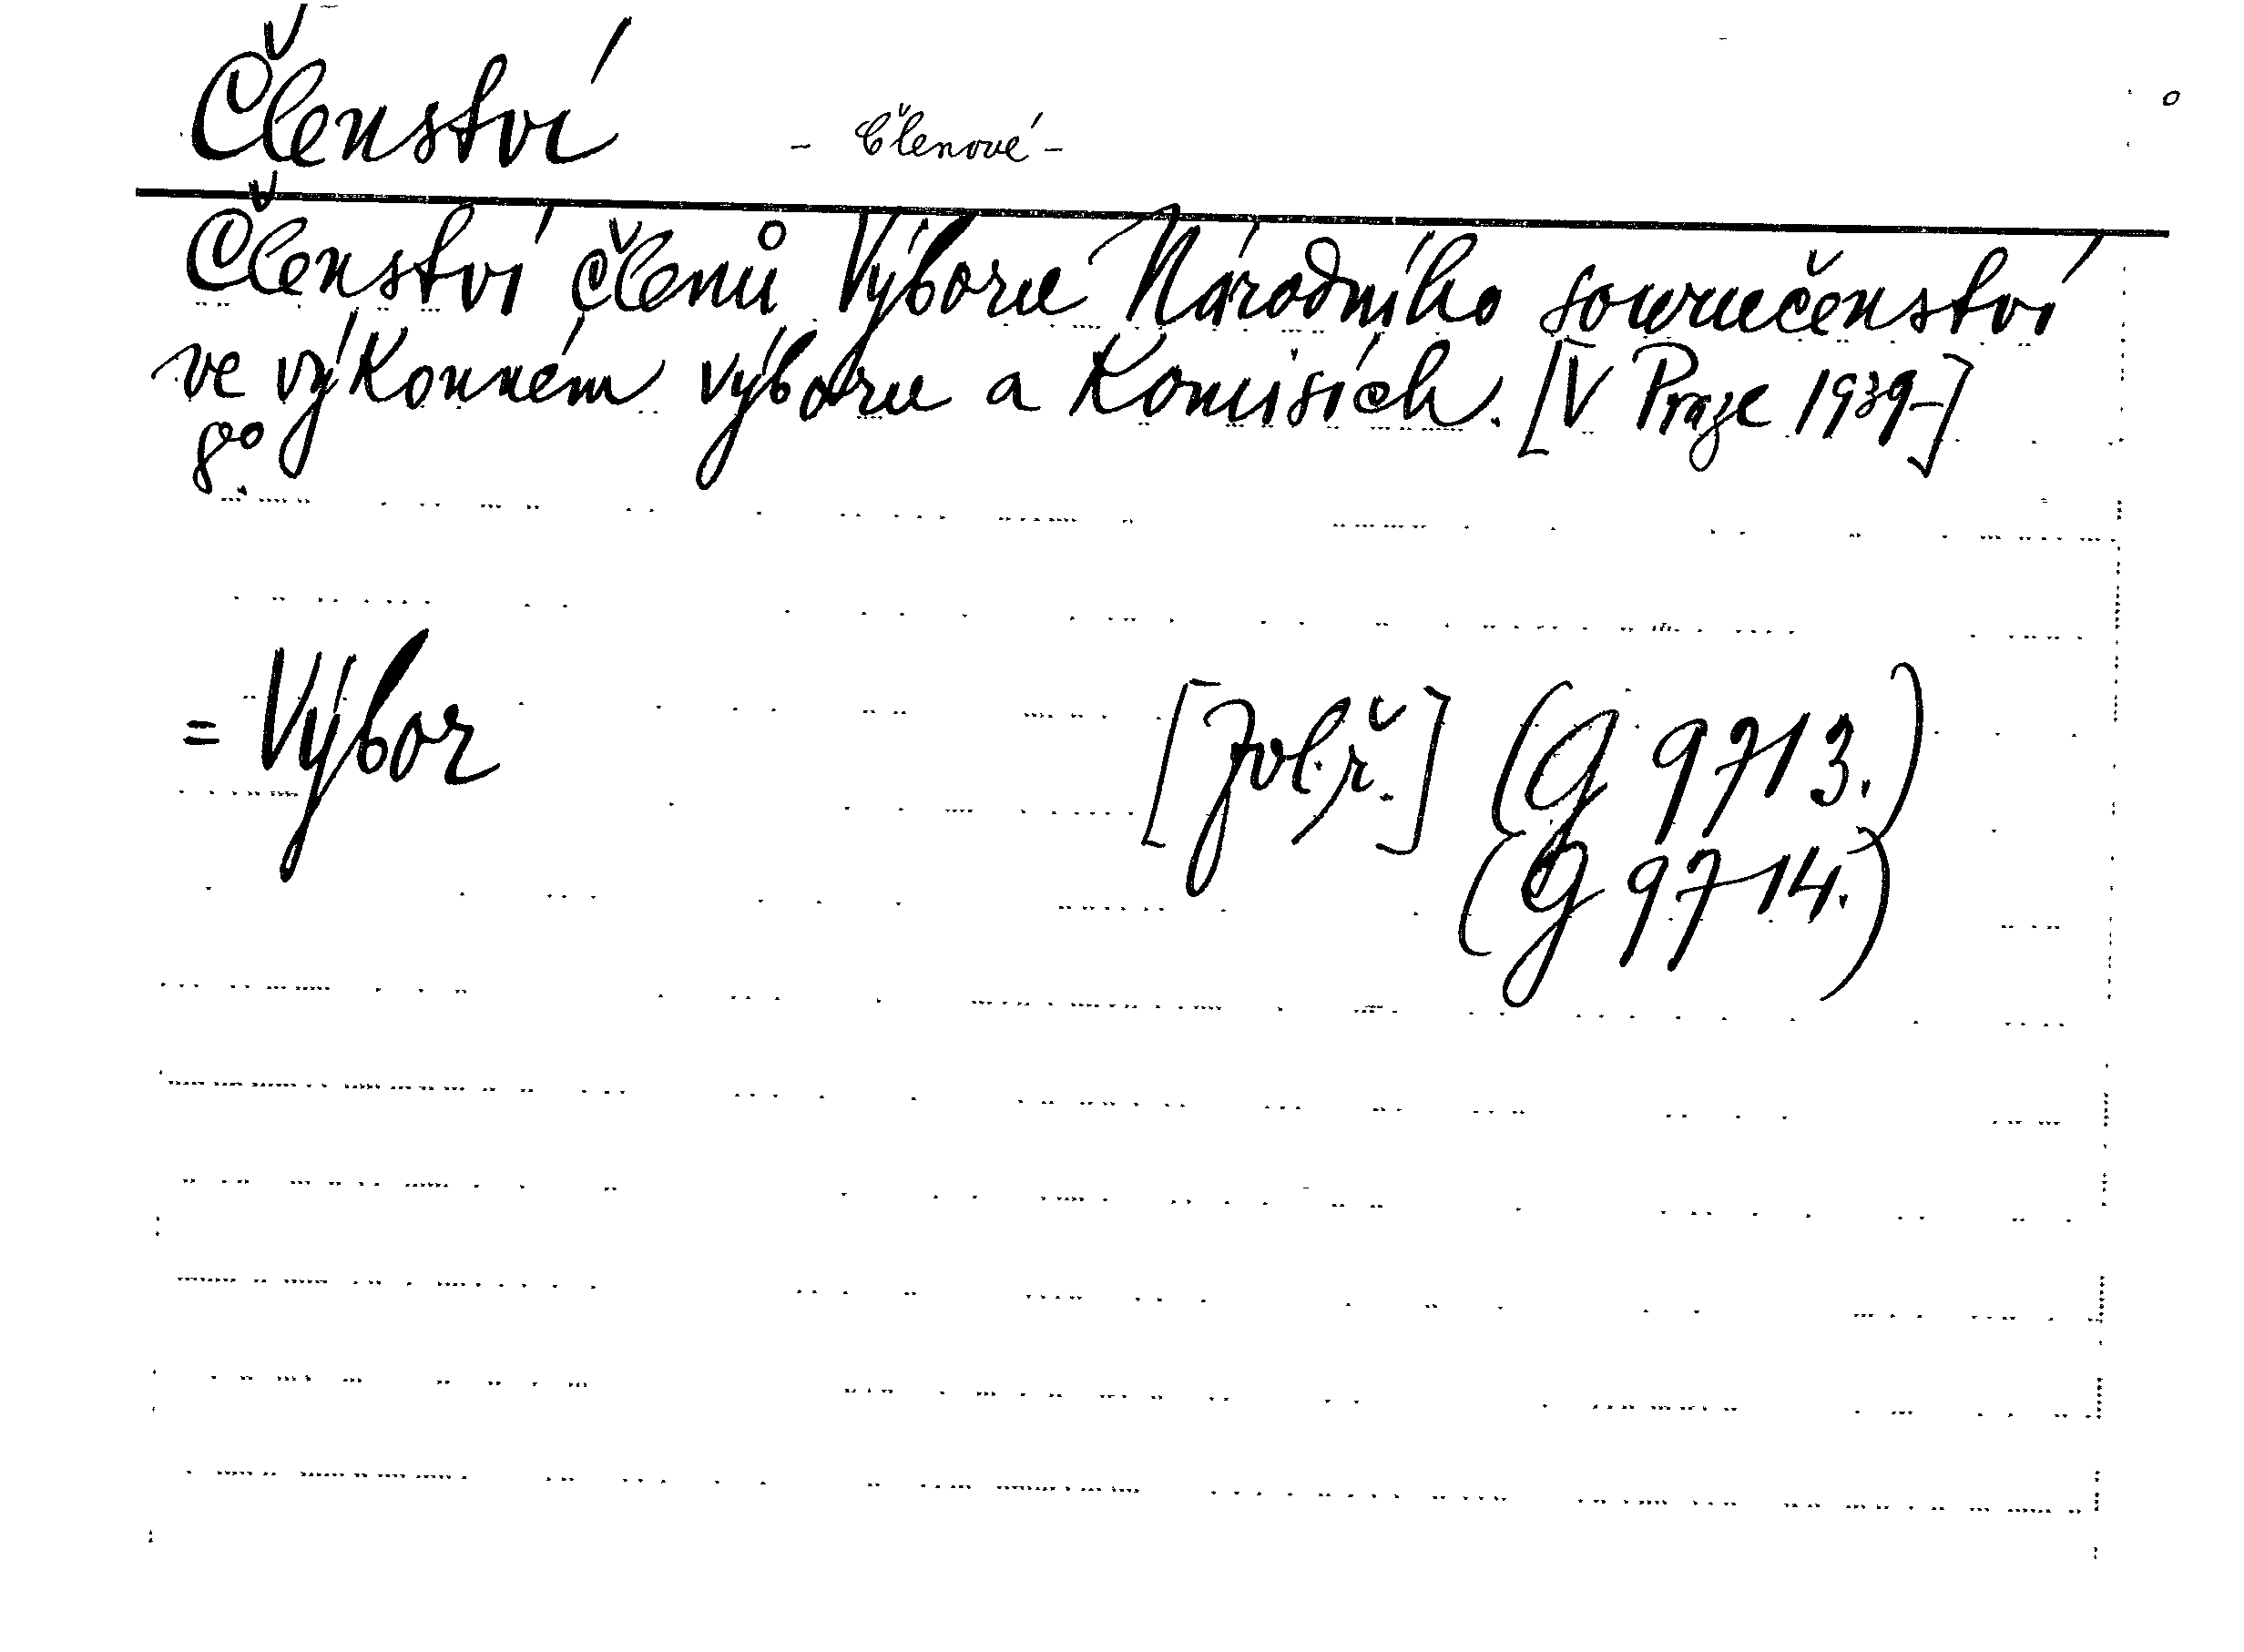 Členství - Členové -
Členství členů Výboru Národního souručenství
ve výkonném výboru a komisích. [V Praze 1939-]
8°.
= Výbor [zvl. ř.] (G 9713.)
(G 9714.)